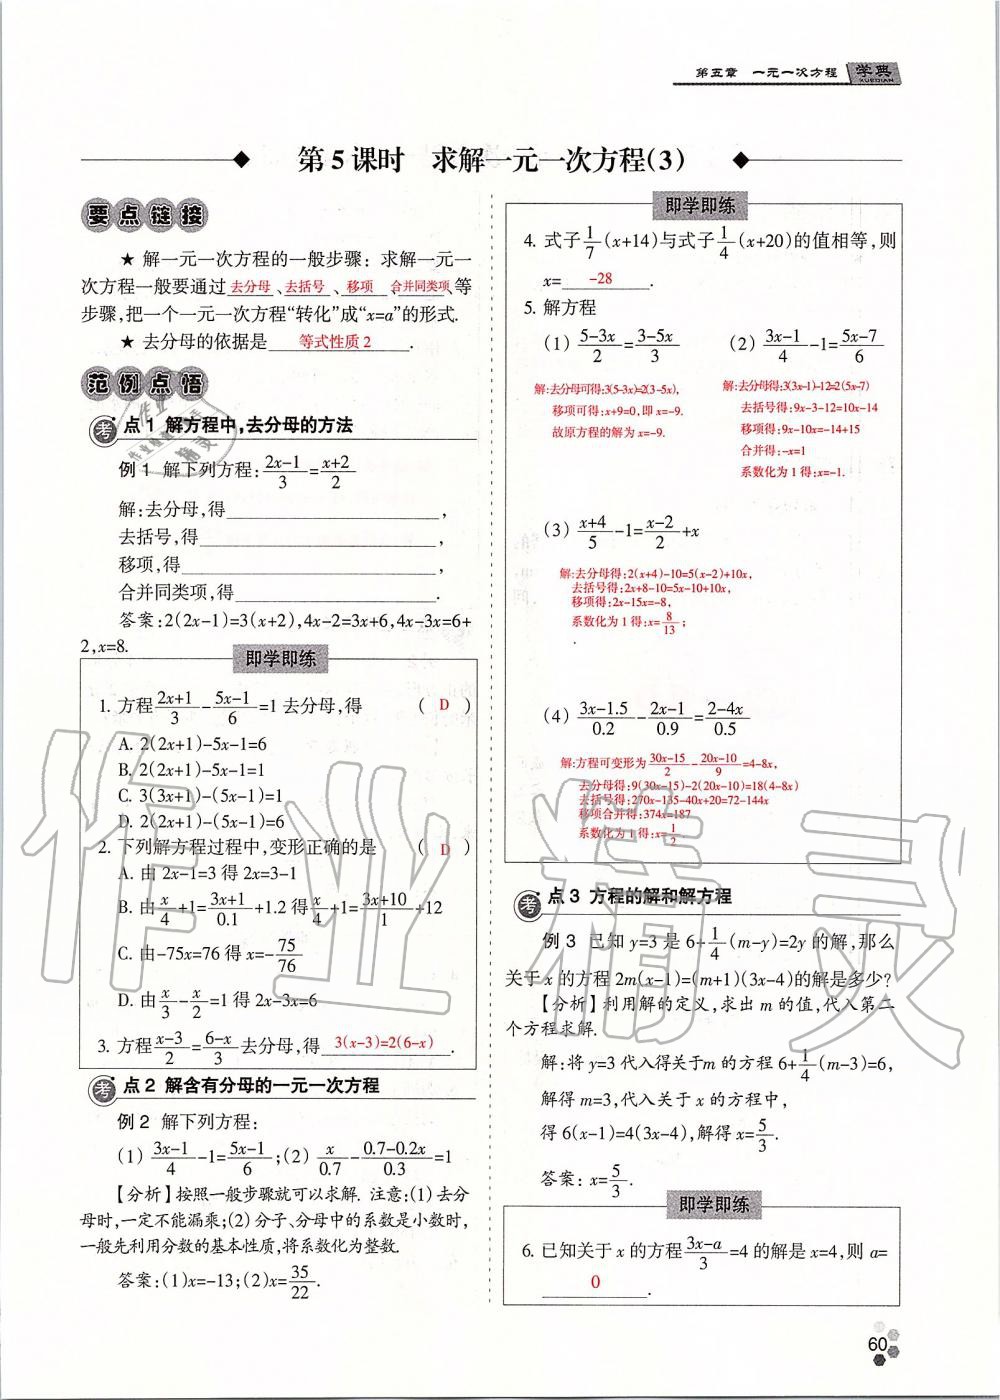 第五章 一元一次方程 学典
XUEDIAN
第5课时 求解一元一次方程(3)
要点链接
★ 解一元一次方程的一般步骤：求解一元一
次方程一般要通过去分母、去括号、移项、合并同类项等
步骤,把一个一元一次方程“转化”成“x=a”的形式.
★ 去分母的依据是 等式性质2 .
范例点悟
考点1 解方程中,去分母的方法
例1 解下列方程:(2x-1)/3=(x+2)/2
解:去分母,得____,
去括号,得____,
移项,得____,
合并同类项,得____.
答案:2(2x-1)=3(x+2),4x-2=3x+6,4x-3x=6+
2,x=8.
即学即练
1. 方程(2x+1)/3-(5x-1)/6=1去分母,得 ( D )
A. 2(2x+1)-5x-1=6
B. 2(2x+1)-5x-1=1
C. 3(3x+1)-(5x-1)=1
D. 2(2x+1)-(5x-1)=6
2. 下列解方程过程中,变形正确的是 ( D )
A. 由 2x-1=3 得 2x=3-1
B. 由x/4+1=(3x+1)/0.1+1.2得x/4+1=(3x+10)/1+12
C. 由-75x=76 得 x=-75/76
D. 由x/3-x/2=1得 2x-3x=6
3. 方程(x-3)/2=(6-x)/3去分母,得 3(x-3)=2(6-x) .
考点2 解含有分母的一元一次方程
例2 解下列方程:
(1) (3x-1)/4-1=(5x-1)/6;(2) x/0.7-(0.7-0.2x)/0.3=1
【分析】按照一般步骤就可以求解. 注意:(1)去分
母时,一定不能漏乘;(2)分子、分母中的系数是小数时,
一般先利用分数的基本性质,将系数化为整数.
答案:(1)x=-13;(2)x=35/22.
即学即练
4. 式子1/7(x+14)与式子1/4(x+20)的值相等,则
x= -28 .
5. 解方程
(1) (5-3x)/2=(3-5x)/3 (2) (3x-1)/4-1=(5x-7)/6
解:去分母可得:3(5-3x)=2(3-5x),
移项可得:x+9=0,即x=-9.
故原方程的解为x=-9.
解:去分母得:3(3x-1)-12=2(5x-7)
去括号得:9x-3-12=10x-14
移项得:9x-10x=-14+15
合并得:-x=1
系数化为1得:x=-1.
(3) (x+4)/5-1=(x-2)/2+x
解:去分母得:2(x+4)-10=5(x-2)+10x,
去括号得:2x+8-10=5x-10+10x,
移项得:2x-15x=-8,
系数化为1得:x=8/13;
(4) (3x-1.5)/0.2-(2x-1)/0.9=(2-4x)/0.5
解:方程可变形为(30x-15)/2-(20x-10)/9=4-8x,
去分母得:9(30x-15)-2(20x-10)=18(4-8x)
去括号得:270x-135-40x+20=72-144x
移项合并得:374x=187
系数化为1得:x=1/2
考点3 方程的解和解方程
例3 已知 y=3 是 6+1/4(m-y)=2y 的解,那么
关于 x 的方程 2m(x-1)=(m+1)(3x-4)的解是多少?
【分析】利用解的定义,求出 m 的值,代入第二
个方程求解.
解:将 y=3 代入得关于m 的方程 6+1/4(m-3)=6,
解得 m=3,代入关于 x 的方程中,
得 6(x-1)=4(3x-4),解得 x=5/3.
答案: x=5/3.
即学即练
6. 已知关于 x 的方程(3x-a)/3=4 的解是 x=4,则 a=
0 .
60
作业精灵